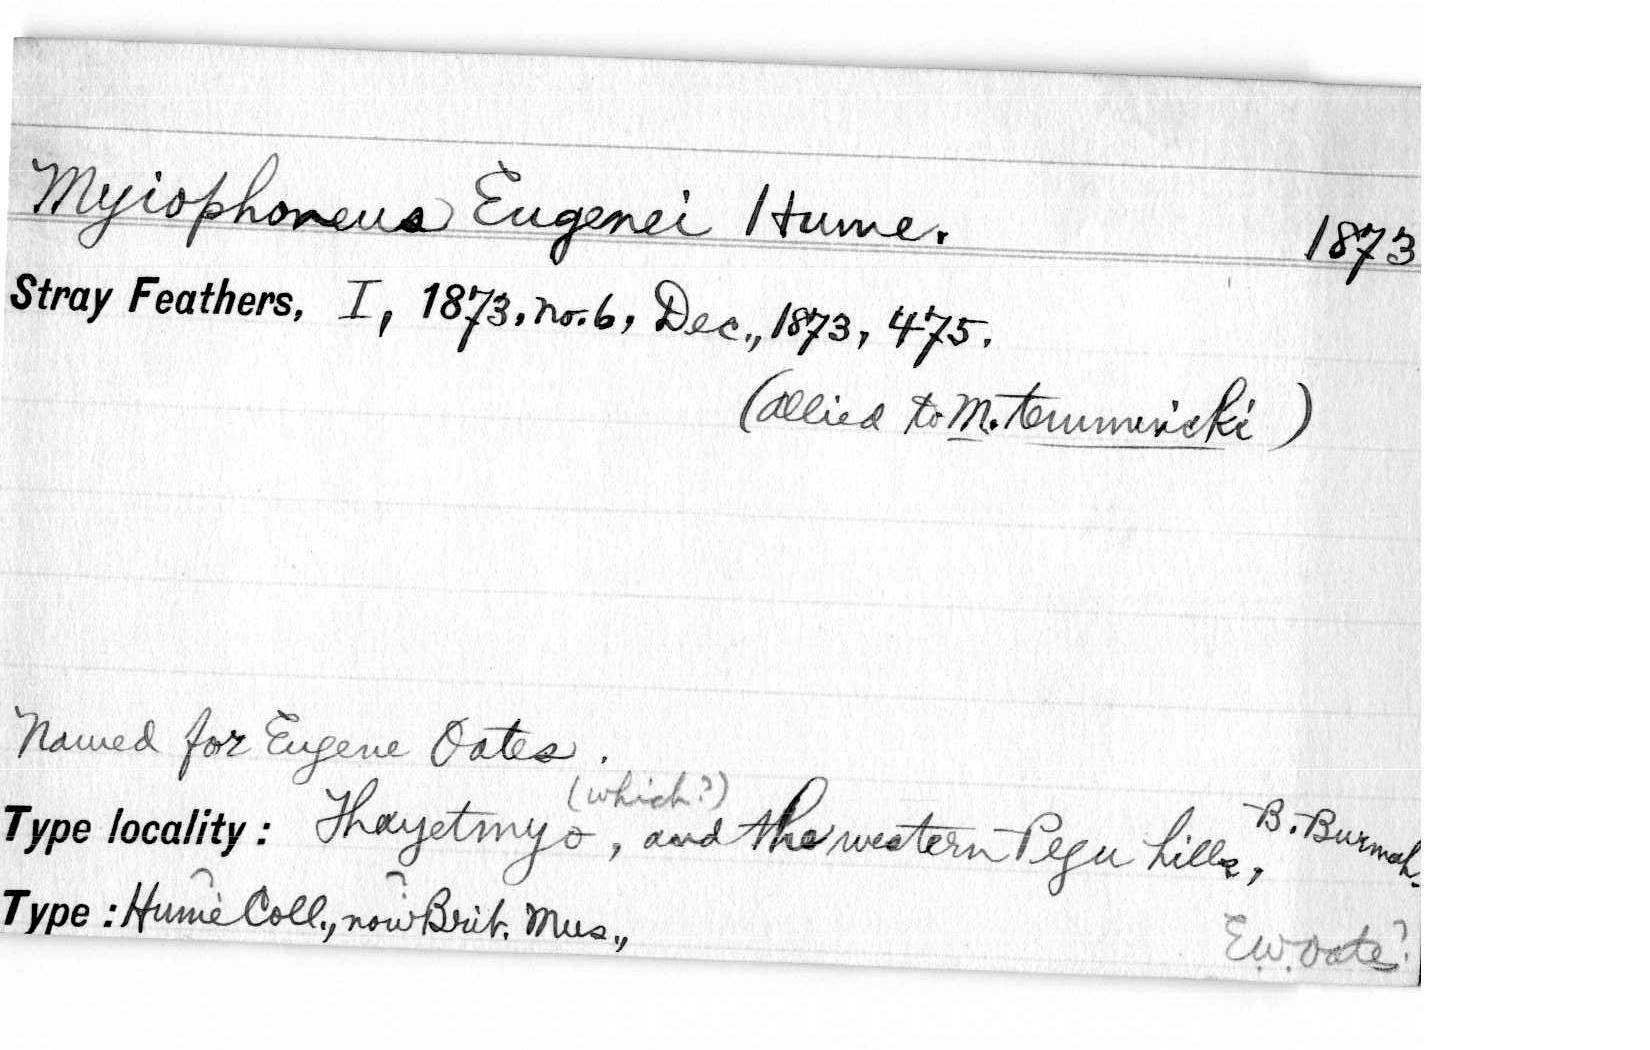 Myiophoneus Eugenei Hume. 1873
Stray Feathers, I, 1873, no. 6, Dec., 1873, 475.
(allied to M. temmincki)
Named for Eugene Oates.
(which?)
Type locality: Thayetmyo, and the western Pegu hills, B. Burmah.
Type: Hume Coll., now Brit. Mus.,
E.W. Oates?